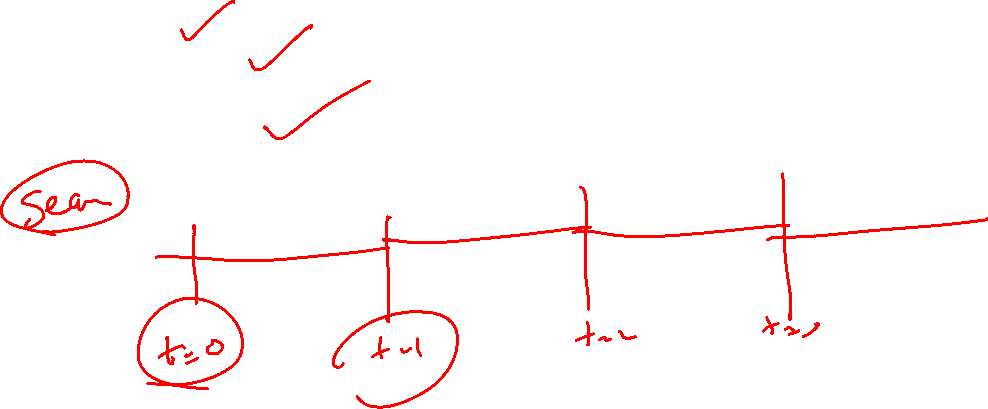 Sean
t=0 t=1 t=2